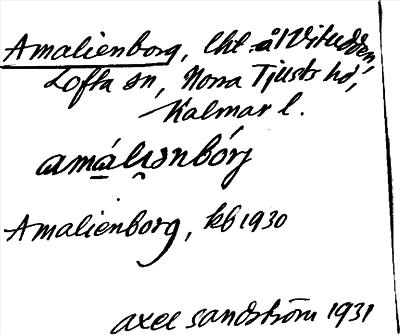 Amalienborg, lht å Vitudden,
Lofta sn, Norra Tjusts hd,
Kalmar l.
amálıənbórj
Amalienborg, kb 1930
Axel Sandström 1931